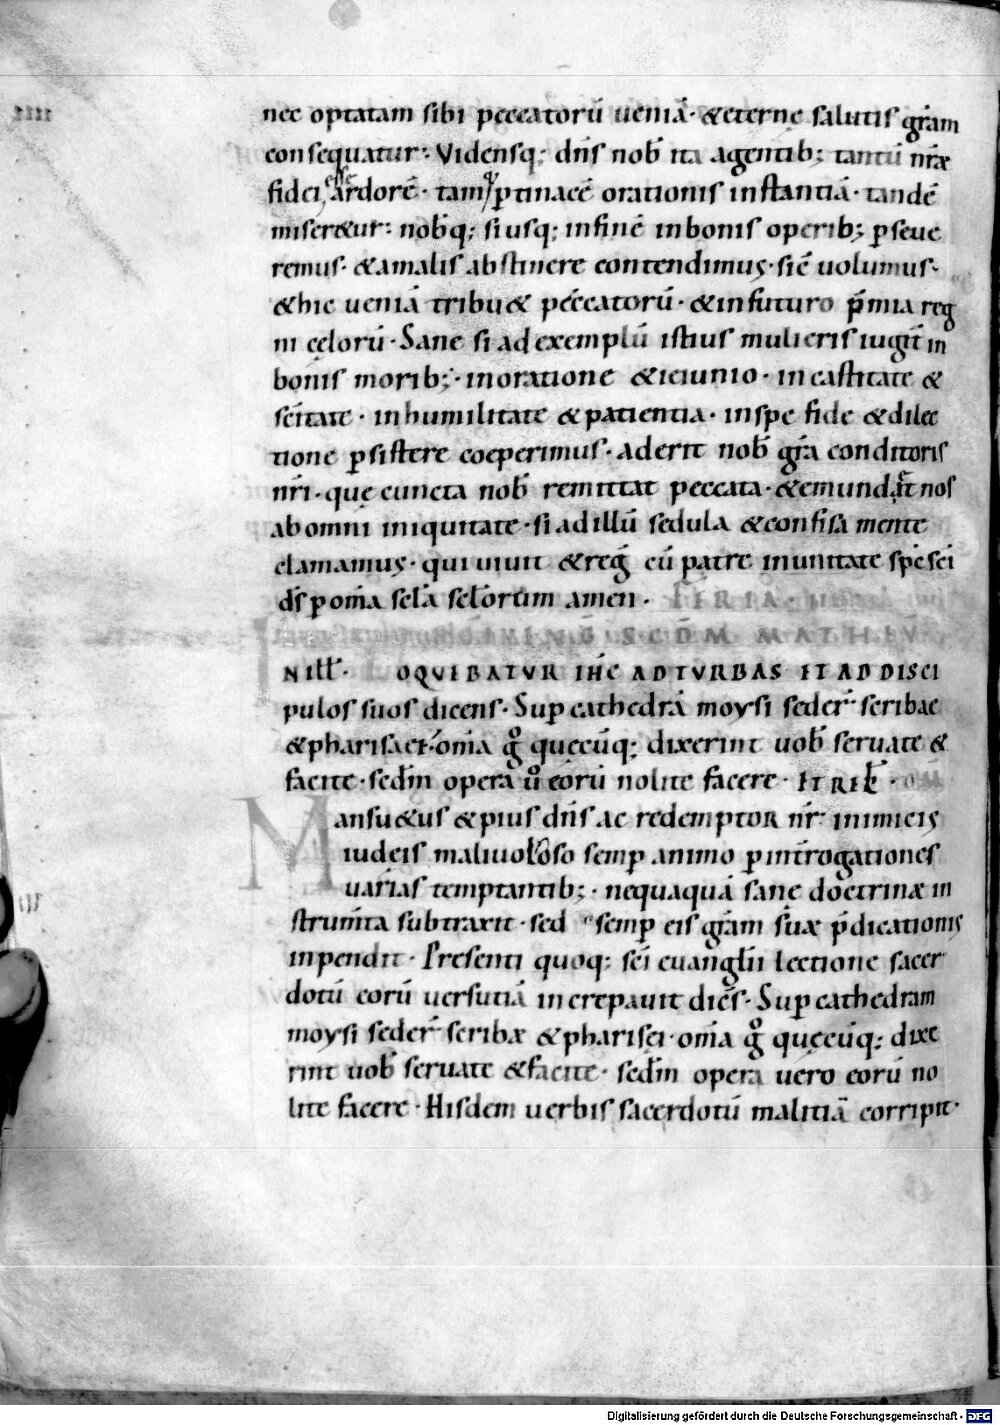 nec optatam sibi peccatorū ueniā· &eternę salutis gr̄am
consequatur· Vidensq; dn̄s nob̄ ita agentib; tantū nr̄æ
fidei ardorē· tamq; ꝑtinacē orationis instantiā· tandē
miser&ur· nob̄q; si usq; infinē inbonis operib; ꝑseue
remus· &amalis abstinere contendimus· sic̄ uolumus·
&hic ueniā tribu& peccatorū· &infuturo p̄mia reg
ni cęlorū· Sane si adexemplū istius mulieris iugit̄ in
bonis morib;· inoratione &ieiunio· incastitate &
sc̄itate· inhumilitate &patientia· inspe fide &dilec
tione ꝑsistere coeperimus· aderit nob̄ gr̄a conditoris
nr̄i· quę cuncta nob̄ remittat peccata· &emundet nos
abomni iniquitate· si adillū sedula &confisa mente
clamamus· qui uiuit &reḡ cū patre inunitate sp̄c sc̄i
ds̄ ꝑ om̄a scl̄a scl̄orum amen· FERIA· III
EVVNG̅· SCDM MATHEV̄
IN ill̄· LOQVEBATVR IHC ADTVRBAS ET ADDISCI
pulos suos dicens· Suꝑ cathedrā moysi seder̄ scribae
&pharisaei· om̄a g̊ quęcūq; dixerint uob̄ seruate &
facite· sed̄m opera u̅o eorū nolite facere· ET REL̄·
Mansu&us &pius dn̄s ac redemptor nr̄ inimicis
iudeis maliuoloso semꝑ animo ꝑint̄rogationes
uarias temptantib;· nequaquā sanę doctrinæ in
strum̄ta subtraxit· sed semꝑ eis gr̄am suæ p̄dicationis
inpendit· Presenti quoq; sc̄i euangl̄ii lectione sacer
dotū eorū uersutiā increpauit dicēs· Suꝑ cathedram
moysi seder̄ scribæ &pharisęi· om̄a g̊ quęcūq; dixe
rint uob̄ seruate &facite· sed̄m opera uero eorū no
lite facere· Hisdem uerbis sacerdotū malitiā corripit·
Digitalisierung gefördert durch die Deutsche Forschungsgemeinschaft - DFG